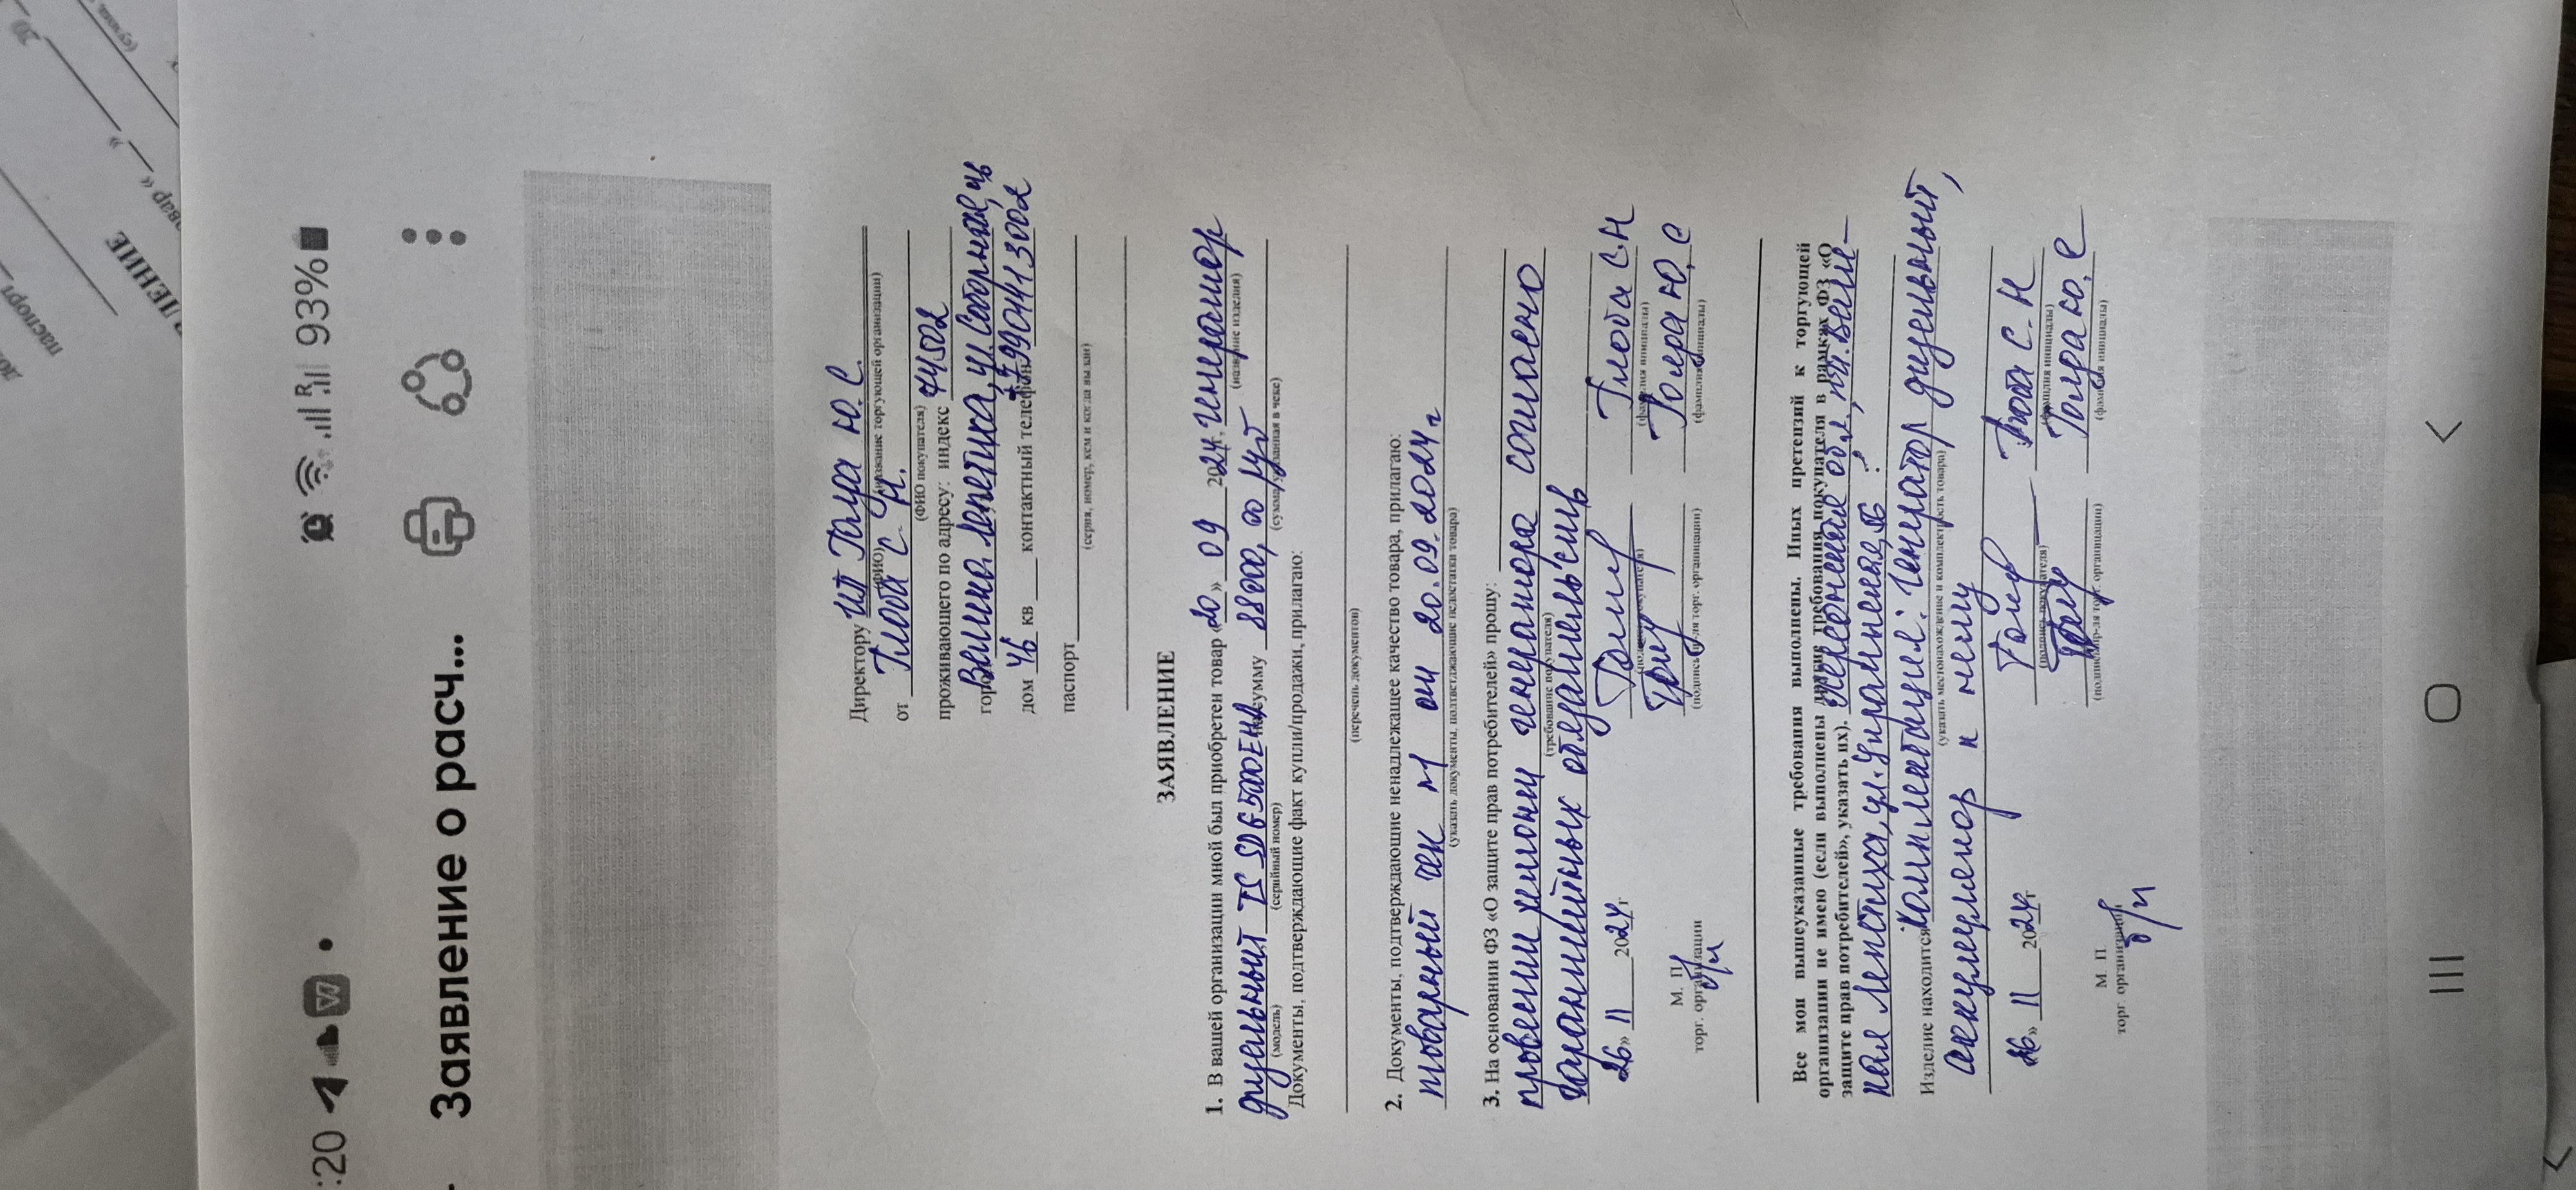 :20
93%
Заявление о расч...
Директору ИП Гора Ю. С.
(ФИО) (название торгующей организации)
от Глоба С. Н.
(ФИО покупателя)
проживающего по адресу: индекс 74502
горо Велика Лепетиха, ул. Соборная, 46
дом 46 кв ___ контактный телефон +79904413002
паспорт
(серия, номер, кем и когда выдан)
ЗАЯВЛЕНИЕ
1. В вашей организации мной был приобретен товар «20» 09 2024г. генератор
(название изделия)
дизельный TSS SDG 5000EHA на сумму 88000,00 руб
(модель) (серийный номер) (сумма, указанная в чеке)
Документы, подтверждающие факт купли/продажи, прилагаю:
(перечень документов)
2. Документы, подтверждающие ненадлежащее качество товара, прилагаю:
товарный чек №1 от 20.09.2024г
(указать документы, подтверждающие недостатки товара)
3. На основании ФЗ «О защите прав потребителей» прошу:
провести ремонт генератора согласно
(требование покупателя)
гарантийных обязательств
Глоба С Н
(подпись покупателя) (фамилия инициалы)
«26» 11 2024г
Гора Ю. С
(подпись пр-ля торг. организации) (фамилия инициалы)
М. П.
торг. организации
б/п
Все мои вышеуказанные требования выполнены. Иных претензий к торгующей
организации не имею (если выполнены другие требования покупателя в рамках ФЗ «О
защите прав потребителей», указать их). Херсонская обл., пгт. Вели-
кая Лепетиха, ул.
Изделие находится Комплектация: генератор дизельный,
(указать местонахождение и комплектность товара)
аккумулятор к нему
Глоба С. Н
(подпись покупателя) (фамилия инициалы)
«26» 11 2024г
Гора Ю. С
(подпись пр-ля торг. организации) (фамилия инициалы)
М П
торг. организации
б/п